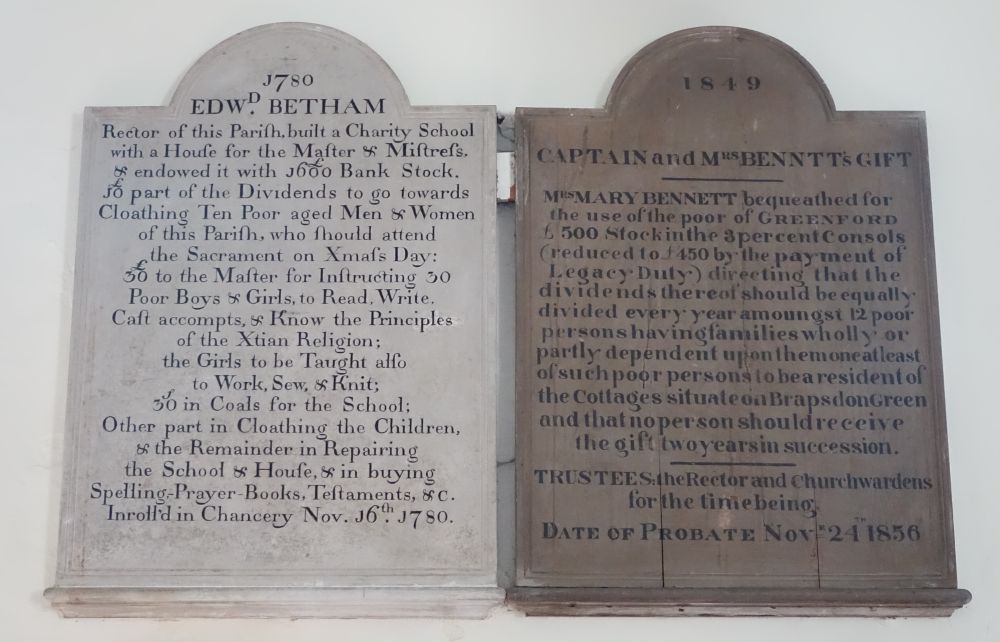 J780
EDW.D BETHAM
Rector of this Pariſh, built a Charity School
with a Houſe for the Maſter & Miſtreſs,
& endowed it with J600£ Bank Stock.
J0£ part of the Dividends to go towards
Cloathing Ten Poor aged Men & Women
of this Pariſh, who ſhould attend
the Sacrament on Xmaſs Day:
30£ to the Maſter for Inſtructing 30
Poor Boys & Girls, to Read, Write,
Caſt accompts, & Know the Principles
of the Xtian Religion;
the Girls to be Taught alſo
to Work, Sew, & Knit;
30£ in Coals for the School;
Other part in Cloathing the Children,
& the Remainder in Repairing
the School & Houſe, & in buying
Spelling-Prayer-Books, Teſtaments, &c.
Inroll'd in Chancery Nov. J6th. J780.
1849
CAPTAIN and MRS BENNTT's GIFT
MRS MARY BENNETT bequeathed for
the use of the poor of GREENFORD
£ 500 Stock in the 3 per cent Consols
(reduced to £450 by the payment of
Legacy Duty) directing that the
dividends thereof should be equally
divided every year amoungst 12 poor
persons having families wholly or
partly dependent upon them one at least
of such poor persons to be a resident of
the Cottages situate on Brapsdon Green
and that no person should receive
the gift two years in succession.
TRUSTEES: the Rector and Churchwardens
for the time being,
DATE OF PROBATE NOVR 24TH 1856